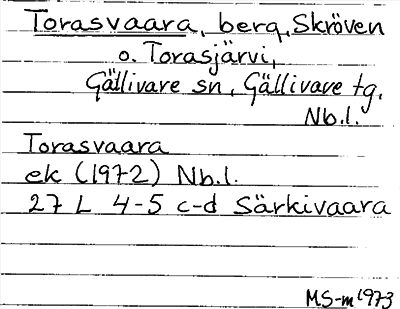 Torasvaara, berg, Skröven
o. Torasjärvi,
Gällivare sn, Gällivare tg.
Nb.l.
Torasvaara
ek (1972) Nb.l.
27 L 4-5 c-d Särkivaara
MS-m 1973